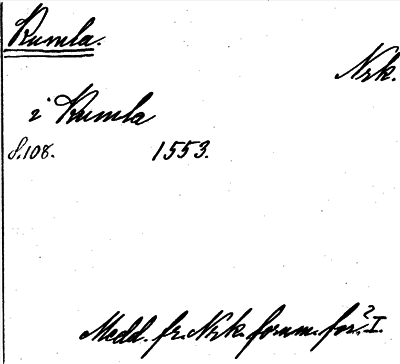 Kumla.
Nrk.
i Kumla
s. 108. 1553.
Medd. fr. Nrk. fornm. för. I.